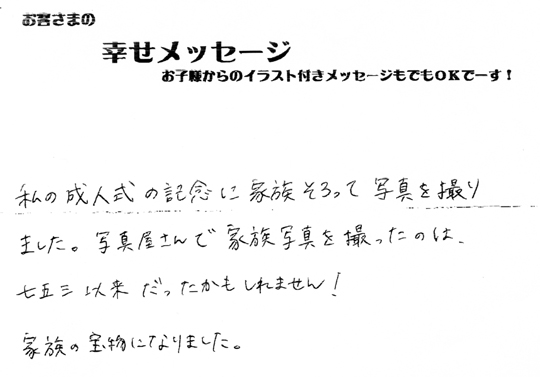 お客さまの
幸せメッセージ
お子様からのイラスト付きメッセージもでもOKでーす！
私の成人式の記念に家族そろって写真を撮り
ました。写真屋さんで家族写真を撮ったのは、
七五三以来だったかもしれません！
家族の宝物になりました。